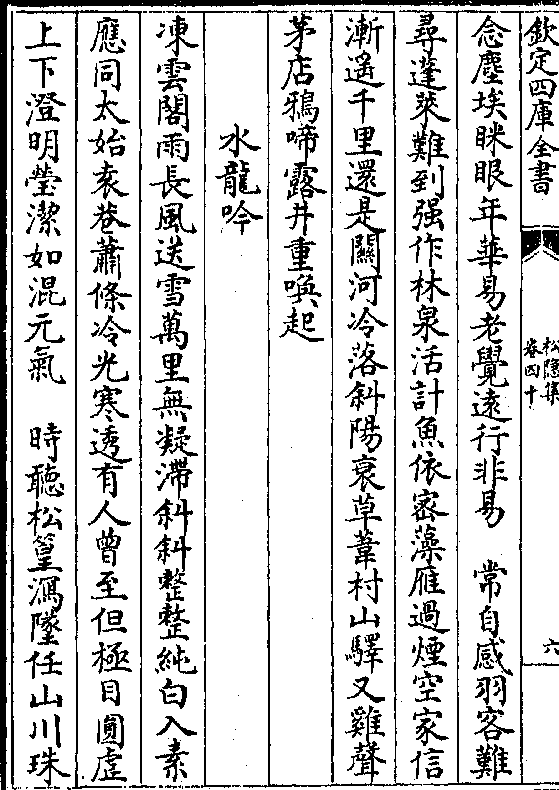 欽定四庫全書
松隱集
卷四十
六
念塵埃眯眼年華易老覺遠行非易　常自感羽客難
尋蓬萊難到强作林泉活計魚依密藻雁過煙空家信
漸遥千里還是關河冷落斜陽衰草葦村山驛又雞聲
茅店鴉啼露井重喚起
水龍吟
凍雲閣雨長風送雪萬里無凝滯斜斜整整純白入素
應同太始袤巷蕭條冷光寒透有人曾至但極目圓虛
上下澄明瑩潔如混元氣　時聽松篁瀉墜任山川珠